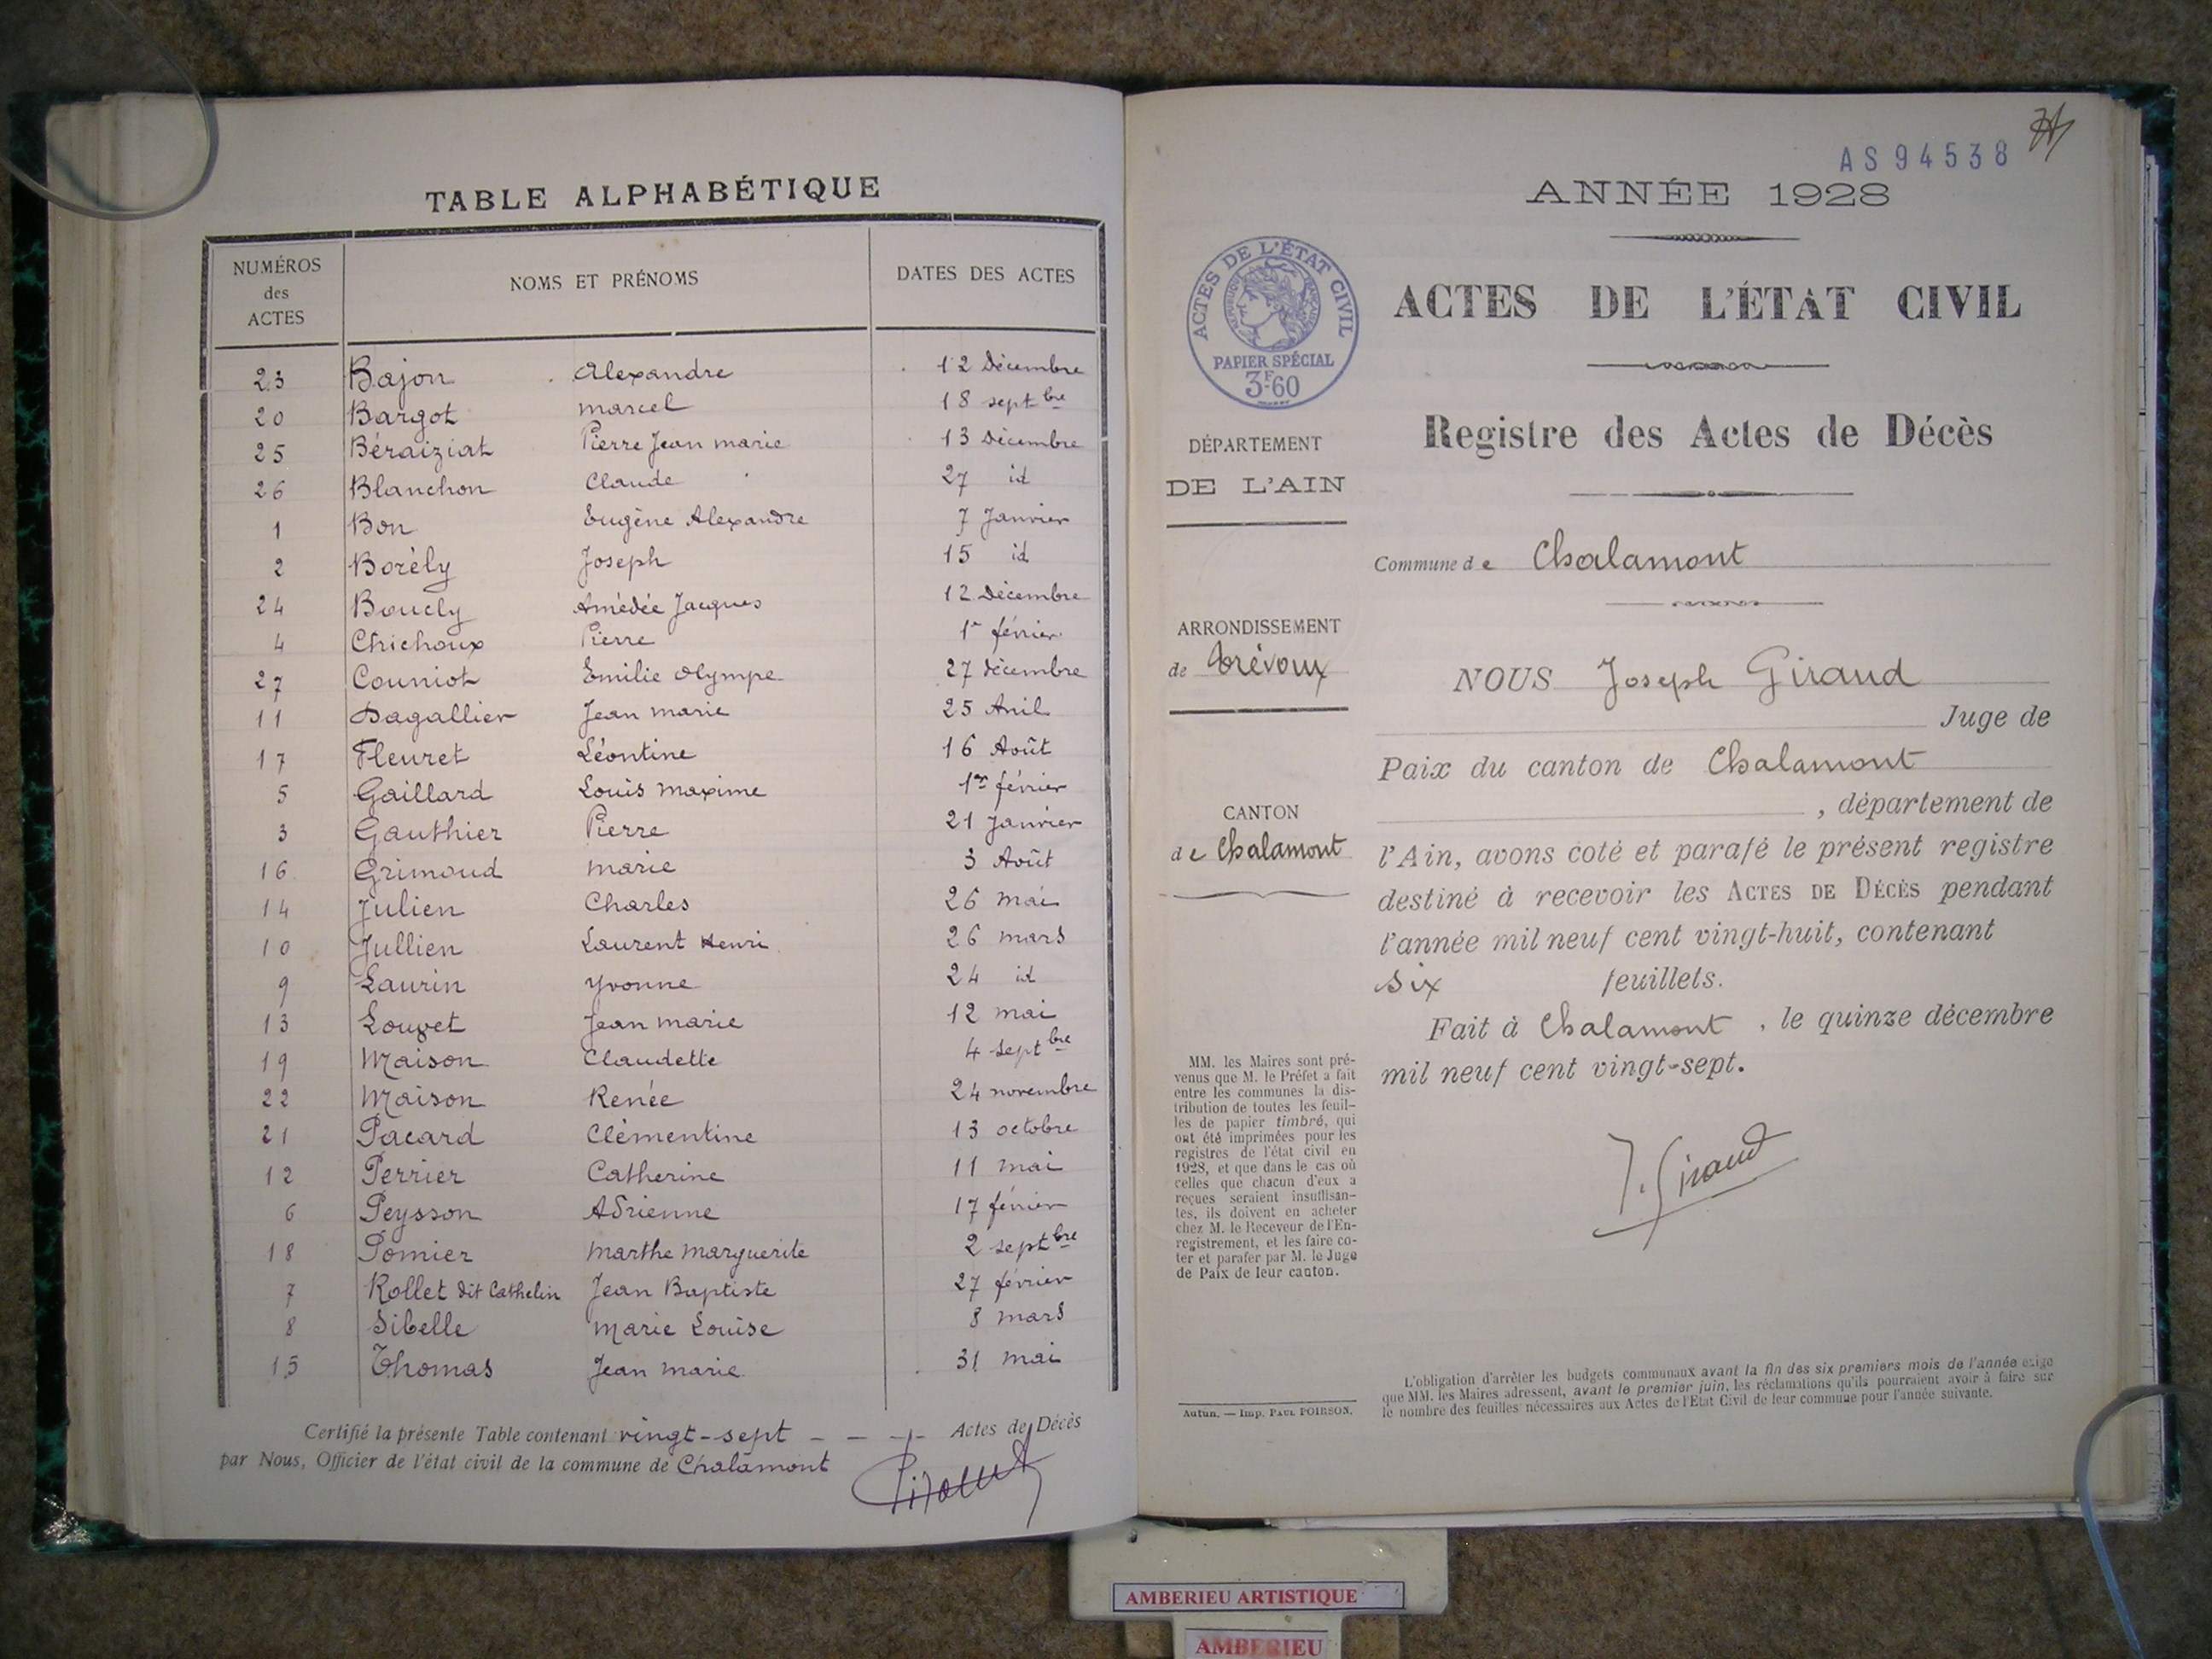 TABLE ALPHABÉTIQUE
NUMÉROS des ACTES NOMS ET PRÉNOMS DATES DES ACTES
23 Bajon Alexandre 12 Décembre
20 Bargot marcel 18 septbre
25 Béraiziat Pierre Jean marie 13 Décembre
26 Blanchon Claude 27 id
1 Bon Eugène Alexandre 7 Janvier
2 Borély Joseph 15 id
24 Boucly Amédée Jacques 12 Décembre
4 Chichoux Pierre 1r février
27 Couniot Emilie Olympe 27 décembre
11 Dagallier Jean marie 25 Avril
17 Fleuret Léontine 16 Août
5 Gaillard Louis maxime 1er février
3 Gauthier Pierre 21 Janvier
16 Grimoud marie 3 Août
14 Julien Charles 26 mai
10 Jullien Laurent Henri 26 mars
9 Laurin Yvonne 24 id
13 Louvet Jean marie 12 mai
19 Maison Claudette 4 septbre
22 Maison Renée 24 novembre
21 Pacard Clémentine 13 octobre
12 Perrier Catherine 11 mai
6 Peysson Adrienne 17 février
18 Pomier marthe marguerite 2 septbre
7 Rollet dit Cathelin Jean Baptiste 27 février
8 Sibelle Marie Louise 8 mars
15 Thomas Jean marie 31 mai
Certifié la présente Table contenant vingt-sept Actes de Décès
par Nous, Officier de l'état civil de la commune de Chalamont
AS94538
ANNÉE 1928
ACTES DE L'ÉTAT CIVIL
Registre des Actes de Décès
ACTES DE L'ÉTAT CIVIL
RÉPUBLIQUE FRANÇAISE
PAPIER SPÉCIAL
3F60
DÉPARTEMENT
DE L'AIN
ARRONDISSEMENT
de Trévoux
CANTON
de Chalamont
MM. les Maires sont pré-
venus que M. le Préfet a fait
entre les communes la dis-
tribution de toutes les feuil-
les de papier timbré, qui
ont été imprimées pour les
registres de l'état civil en
1928, et que dans le cas où
celles que chacun d'eux a
reçues seraient insuffisan-
tes, ils doivent en acheter
chez M. le Receveur de l'En-
registrement, et les faire co-
ter et parafer par M. le Juge
de Paix de leur canton.
Autun. — Imp. PAUL POIRSON.
Commune de Chalamont
NOUS Joseph Giraud
Juge de
Paix du canton de Chalamont
, département de
l'Ain, avons coté et parafé le présent registre
destiné à recevoir les ACTES DE DÉCÈS pendant
l'année mil neuf cent vingt-huit, contenant
six feuillets.
Fait à Chalamont, le quinze décembre
mil neuf cent vingt-sept.
J. Giraud
L'obligation d'arrêter les budgets communaux avant la fin des six premiers mois de l'année exige
que MM. les Maires adressent, avant le premier juin, les réclamations qu'ils pourraient avoir à faire sur
le nombre des feuilles nécessaires aux Actes de l'Etat Civil de leur commune pour l'année suivante.
AMBERIEU ARTISTIQUE
AMBERIEU